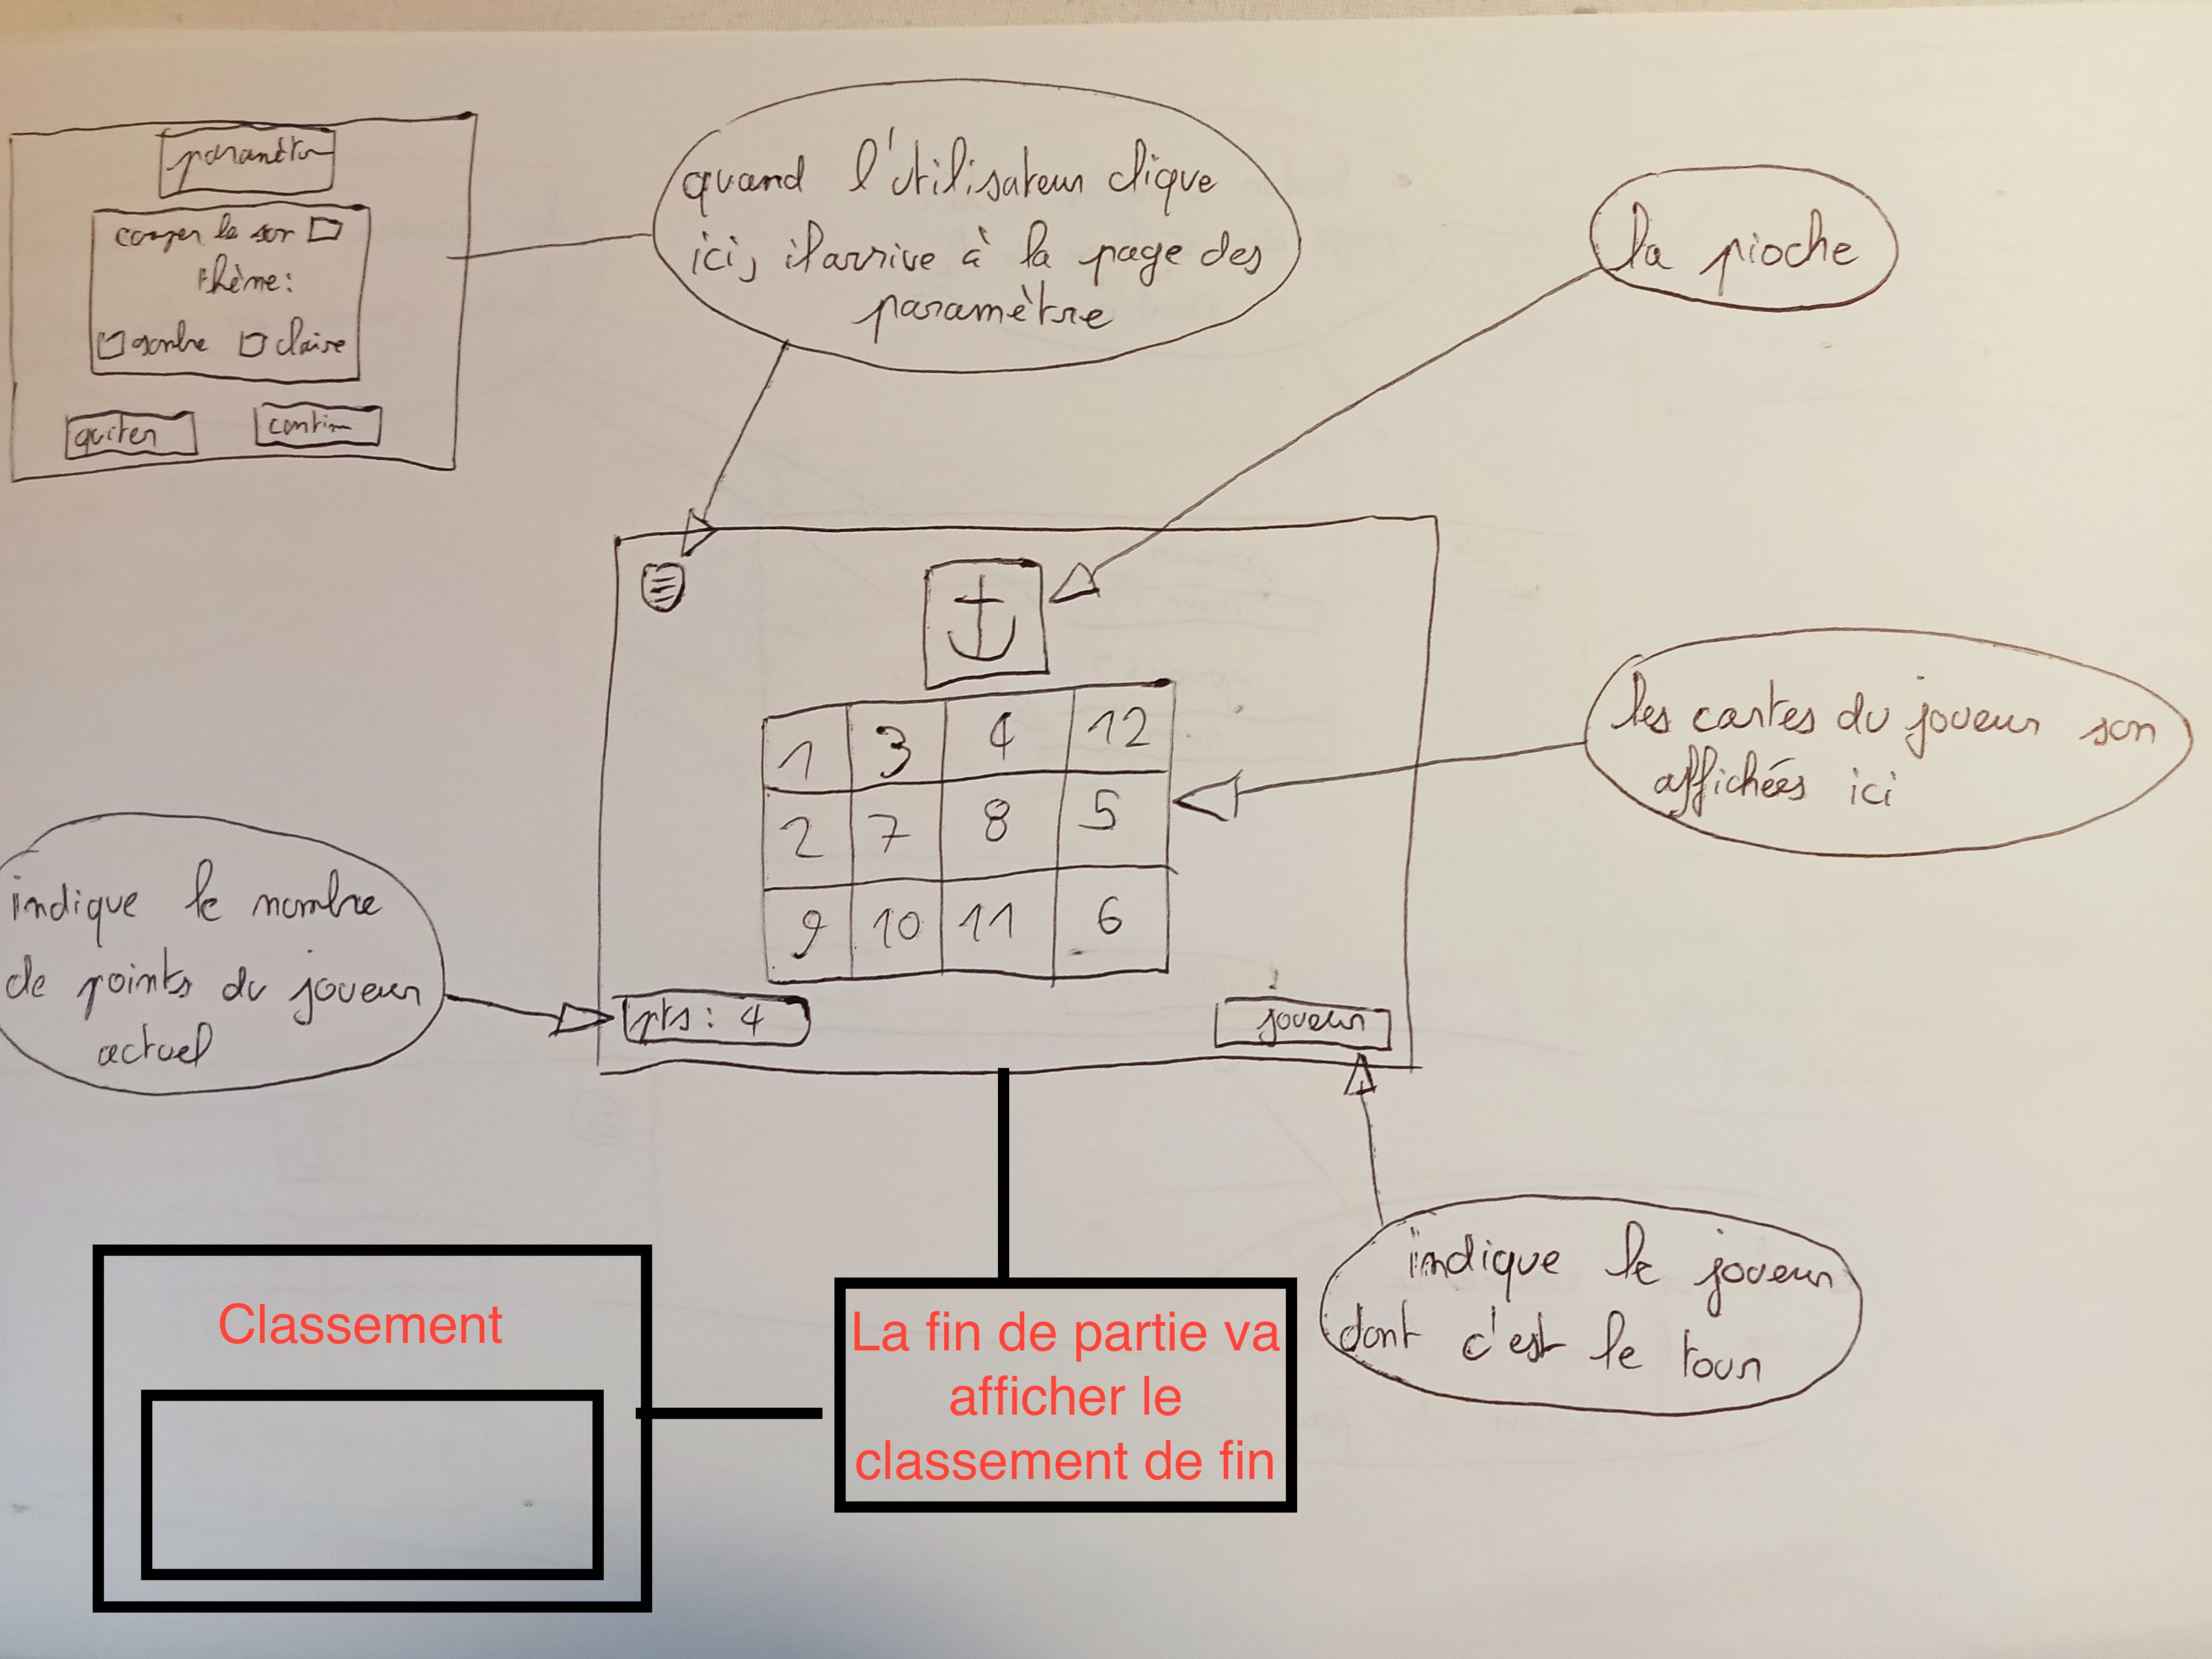 paramètre
couper le son
thème:
sombre claire
quiter
continu
quand l'utilisateur clique
ici, il arrive à la page des
paramètre
la pioche
1 3 4 12
2 7 8 5
9 10 11 6
les cartes du joueur son
affichées ici
indique le nombre
de points du joueur
actuel
pts: 4
joueur
indique le joueur
dont c'est le tour
Classement
La fin de partie va
afficher le
classement de fin